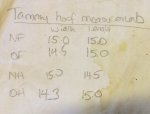 Tammy hoof measurements
Width Length
NF 15.0 15.0
OF 14.5 15.0
NH 15.0 14.5
OH 14.3 15.0